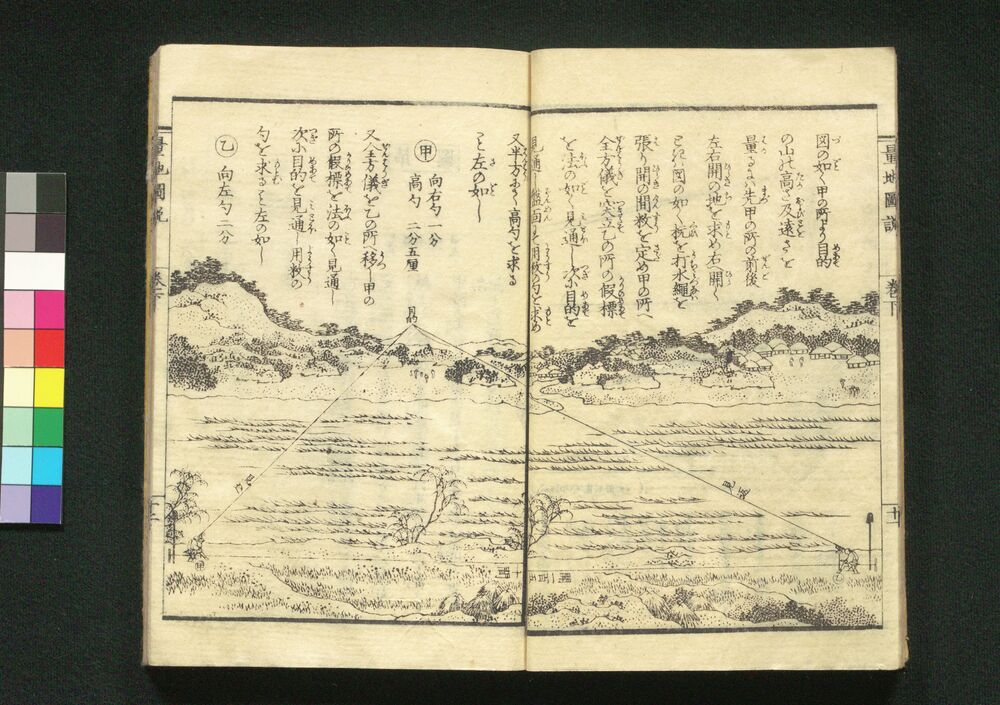 図の如く甲の所より目的
の山の高さ及遠さを
量るには先甲の所の前後
左右開の地を求め右へ開く
こと図の如く杭を打水繩を
張り開の間数を定め甲の所へ
全方儀を突立乙の所の假標
を法の如く見通し次に目的を
見通し鑑面にて用数の勺を求め
又半方にて高勺を求る
こと左の如し
甲 向右勺 一分
高勺 二分五厘
又全方儀を乙の所へ移し甲の
所の假標を法の如く見通し
次に目的を見通し用数の
勺を求ること左の如し
乙 向左勺 二分
目的
見通
量地圖説
巻下
十